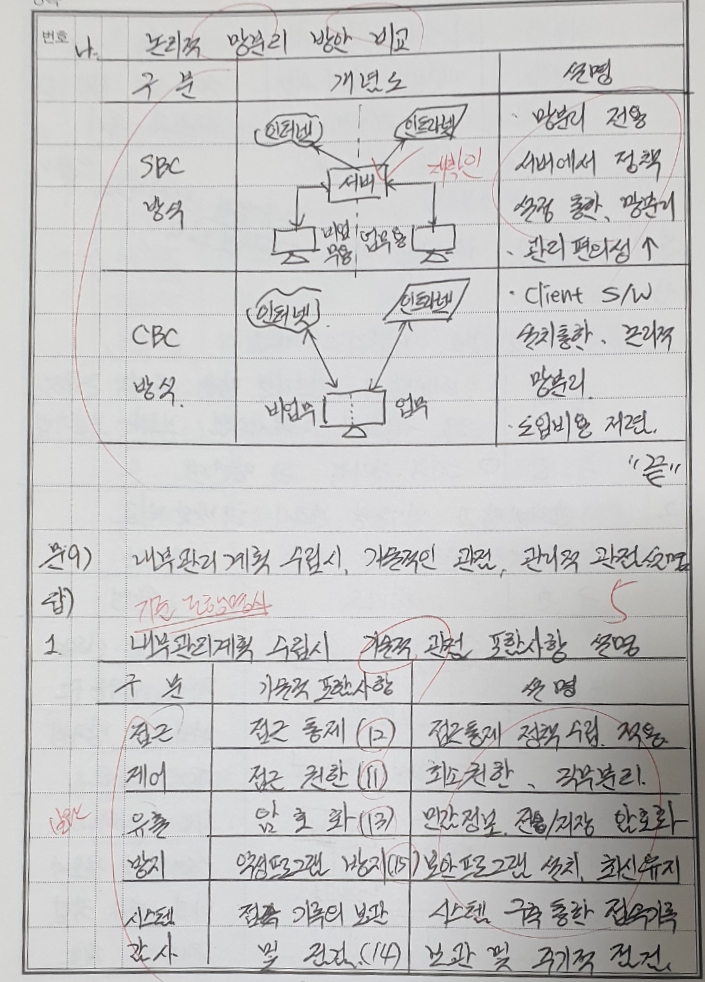 번호
나. 논리적 망분리 방안 비교
구 분 개념도 설명
SBC
방식
인터넷 인트라넷
서버
비업무용 업무용
· 망분리 전용
서버에서 정책
설정 통한, 망분리
· 관리 편의성 ↑
CBC
방식.
인터넷 인트라넷
비업무 업무
· Client S/W
설치통한, 논리적
망분리.
· 도입비용 저렴.
"끝"
문9) 내부관리계획 수립시, 기술적인 관점, 관리적 관점 설명
답)
5
1. 내부관리계획 수립시 기술적 관점 포함사항 설명
구 분 기술적 포함사항 설 명
접근 접근 통제 (12) 접근통제 정책 수립, 적용.
제어 접근 권한 (11) 최소권한, 직무분리.
유출 암 호 화 (13) 민감정보, 전송/저장 암호화
방지 악성프로그램 방지 (15) 보안프로그램 설치, 최신유지
시스템 접속 기록의 보관 시스템 구축 통한 접속기록
감사 및 점검. (14) 보관 및 주기적 점검.